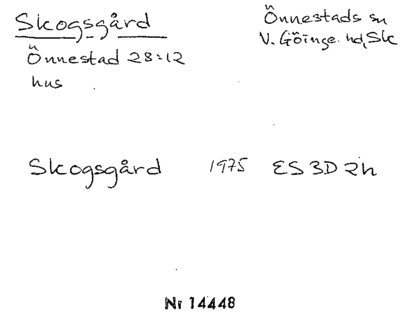 Skogsgård
Önnestad 28:12
hus
Önnestads sn
V. Göinge hd, Sk
Skogsgård 1975 ES 3D 2h
Nr 14448